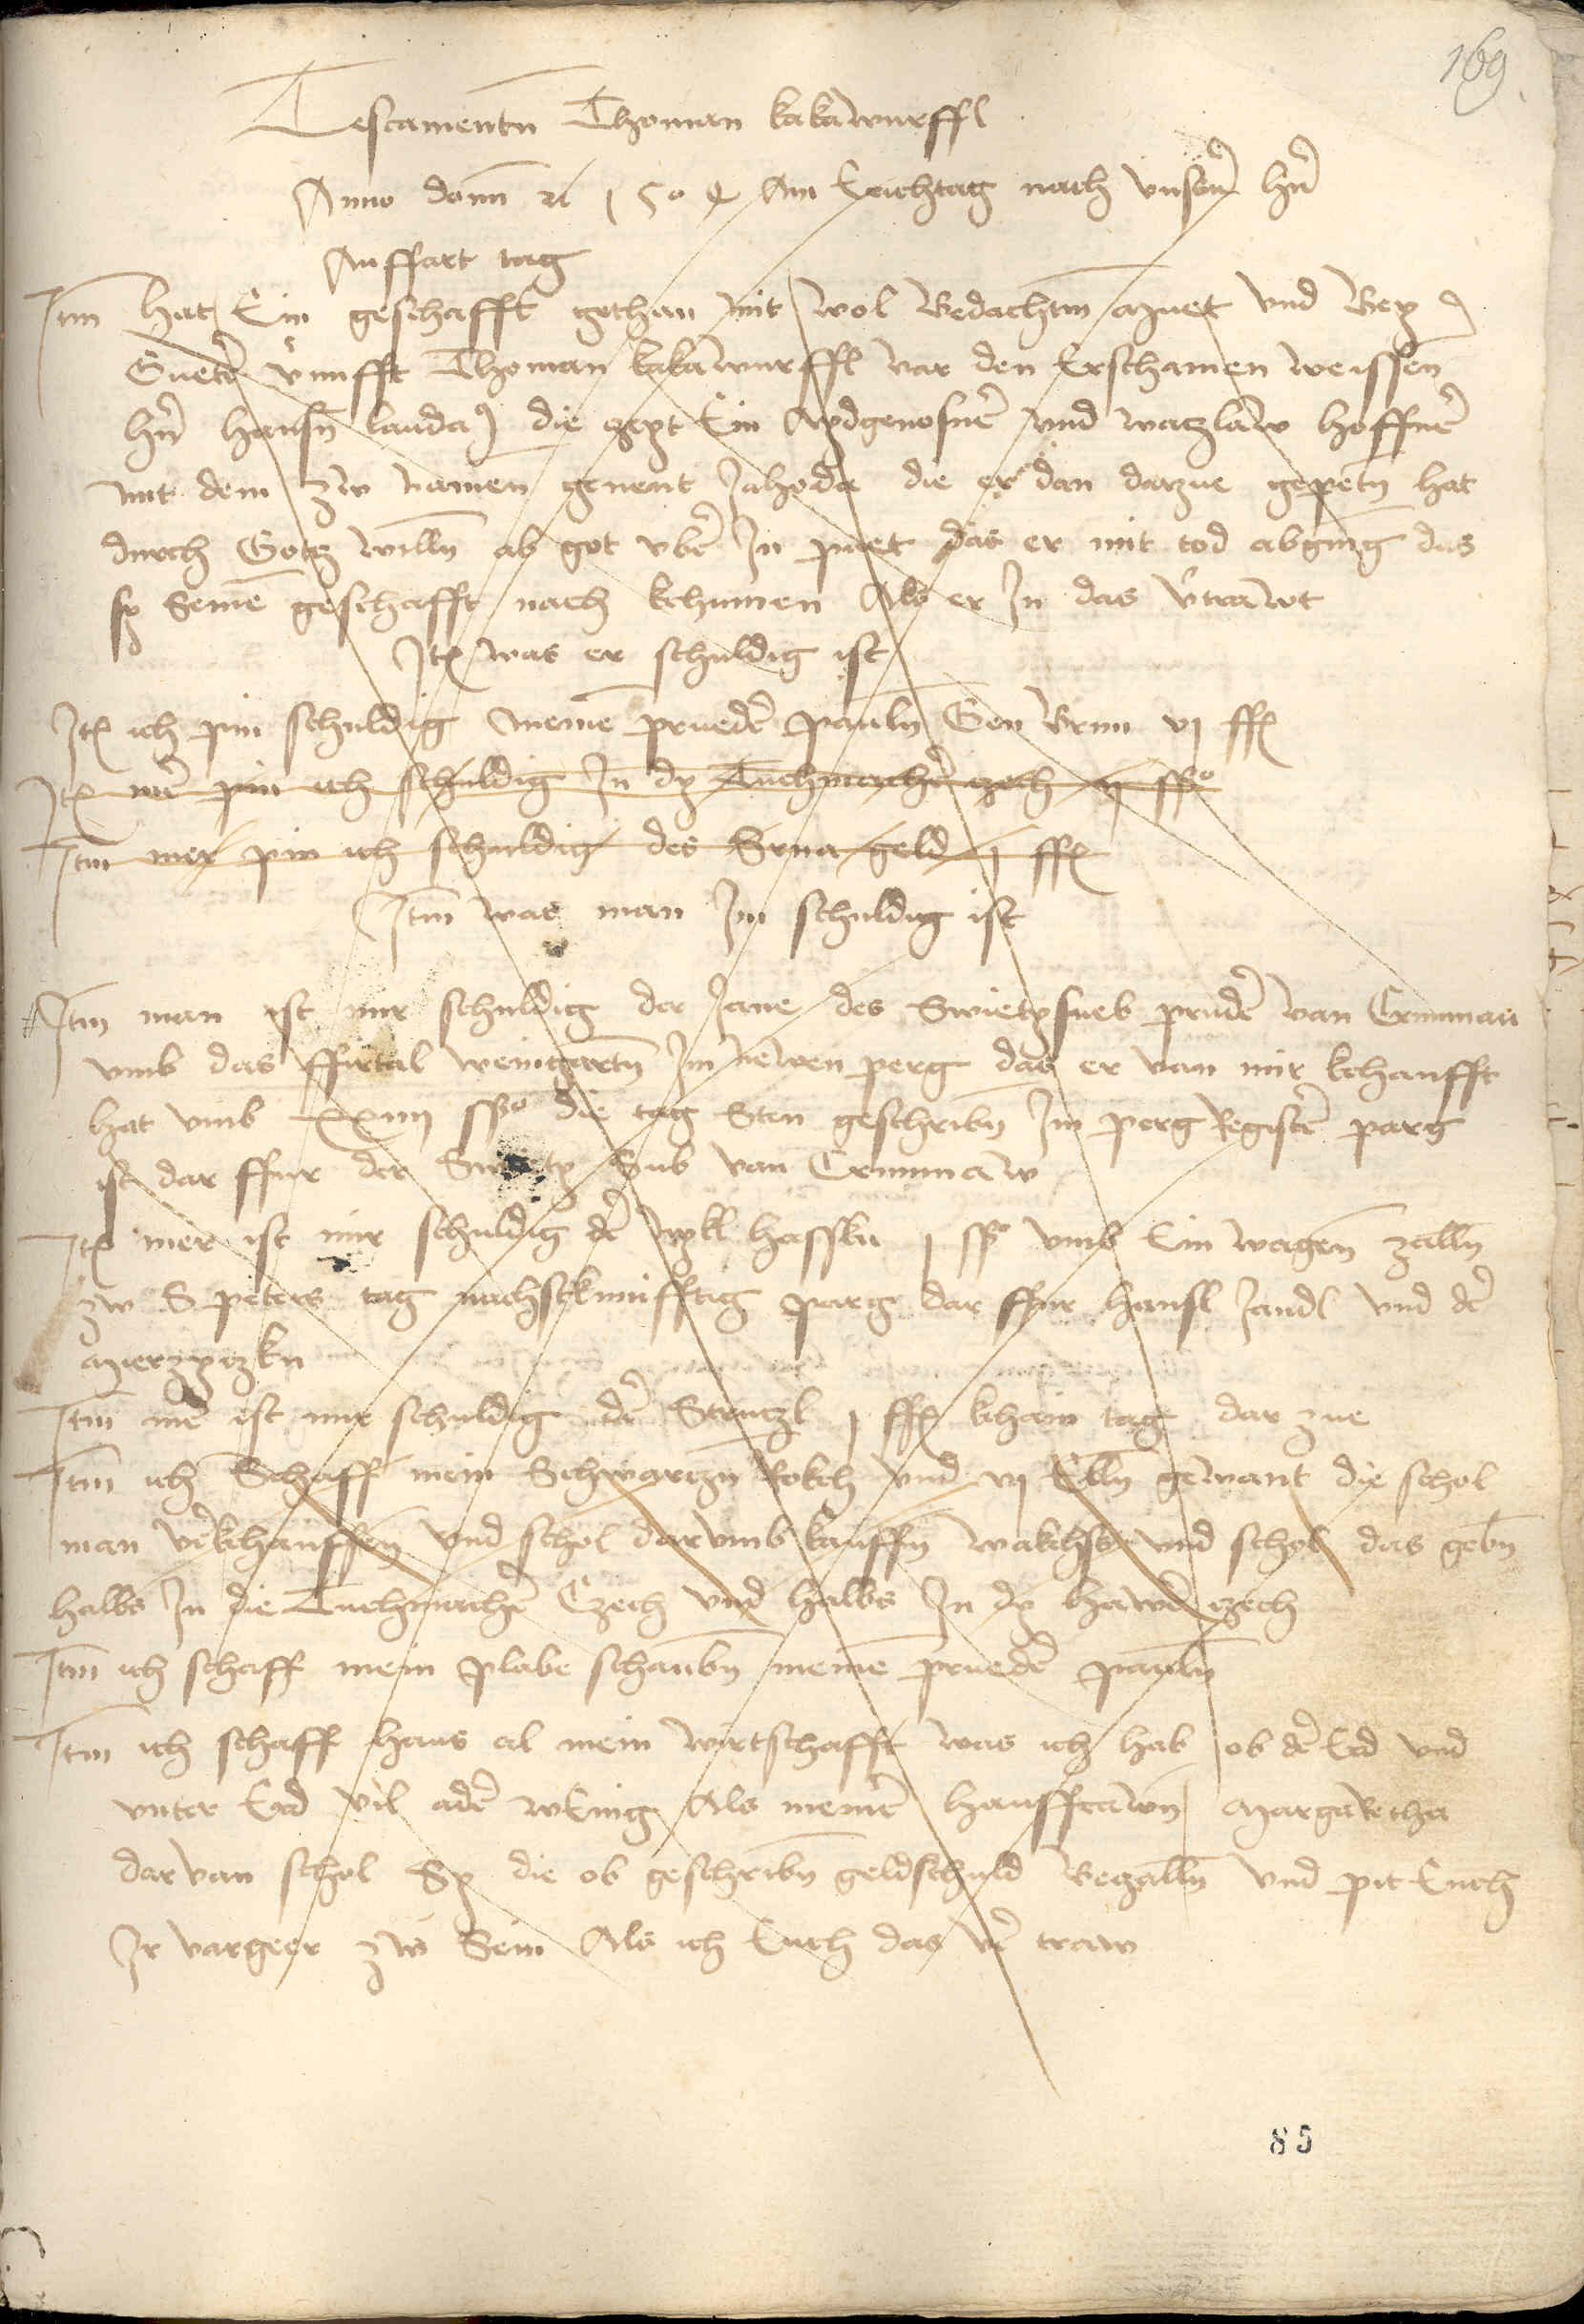 169
Testamentn Thoman kakawurffl
Anno domi etc 1504 Am Erichtag nach unser hn
Auffart tag
Itm hat Ein geschafft gethan mit wol Bedachtm muet und Bey
Guetr vnunfft Thoman kakawurffl var den Erschamen weissen
hn hansn lauda die czeyt Ein Aydgenosner und waczlaw hoffner
mit dem zw namen genent Jahoda die er dan darzue gepetn hat
durch Gotz willn ab got vber In puet das er mit tod abging das
sy Seine geschafft nach kchumen Als er In das vtrawt
Itm was er schuldig ist
Itm ich pin schuldig meine prueder pauln Gen Brun vj ss
Itm mer pin ich schuldig In dy Tuchmacher czech ij sso
Itm mer pin ich schuldig des Srna geld j ss
Itm was man Im schuldig ist
Itm man ist mir schuldig der Jane des Swietysneb pruder van Crumnau
umb das ffirtal weingartn Im newen perg das er van mir kchaufft
hat umb xxiiij sso die tag Sten geschribn Im perg Register parg
ist dar ffur der Swety Sub van Crumnaw
Itm mer ist mir schuldig der Nykl hasskn j sso umb Ein wagen zalln
zw S peters tag nachstkunfftig parg dar ffur hansl Jandl und der
merzyczkn
Itm mer ist mir schuldig der Struczl j ss kchain tag dar zue
Itm ich Schaff mein Schwarczn Rokch und vj Elln gewant die schol
man verkchauffen und schol dar umb kauffn wakchss und schol das gebn
halbs In die Tuchmacher Czech und halbs In dy hawer czech
Itm ich schaff mein plabe schaubn meine prueder pauln
Itm ich schaff haus al mein wirtschafft was ich hab ob der Erd und
unter Erd vil ader wEnig Als meiner hausffrawn Margaretha
dar van schol Sy die ob geschribn geldschuld Beczalln und pit Euch
Ir vargeer zw Sein Als ich Euch das ver traw
85